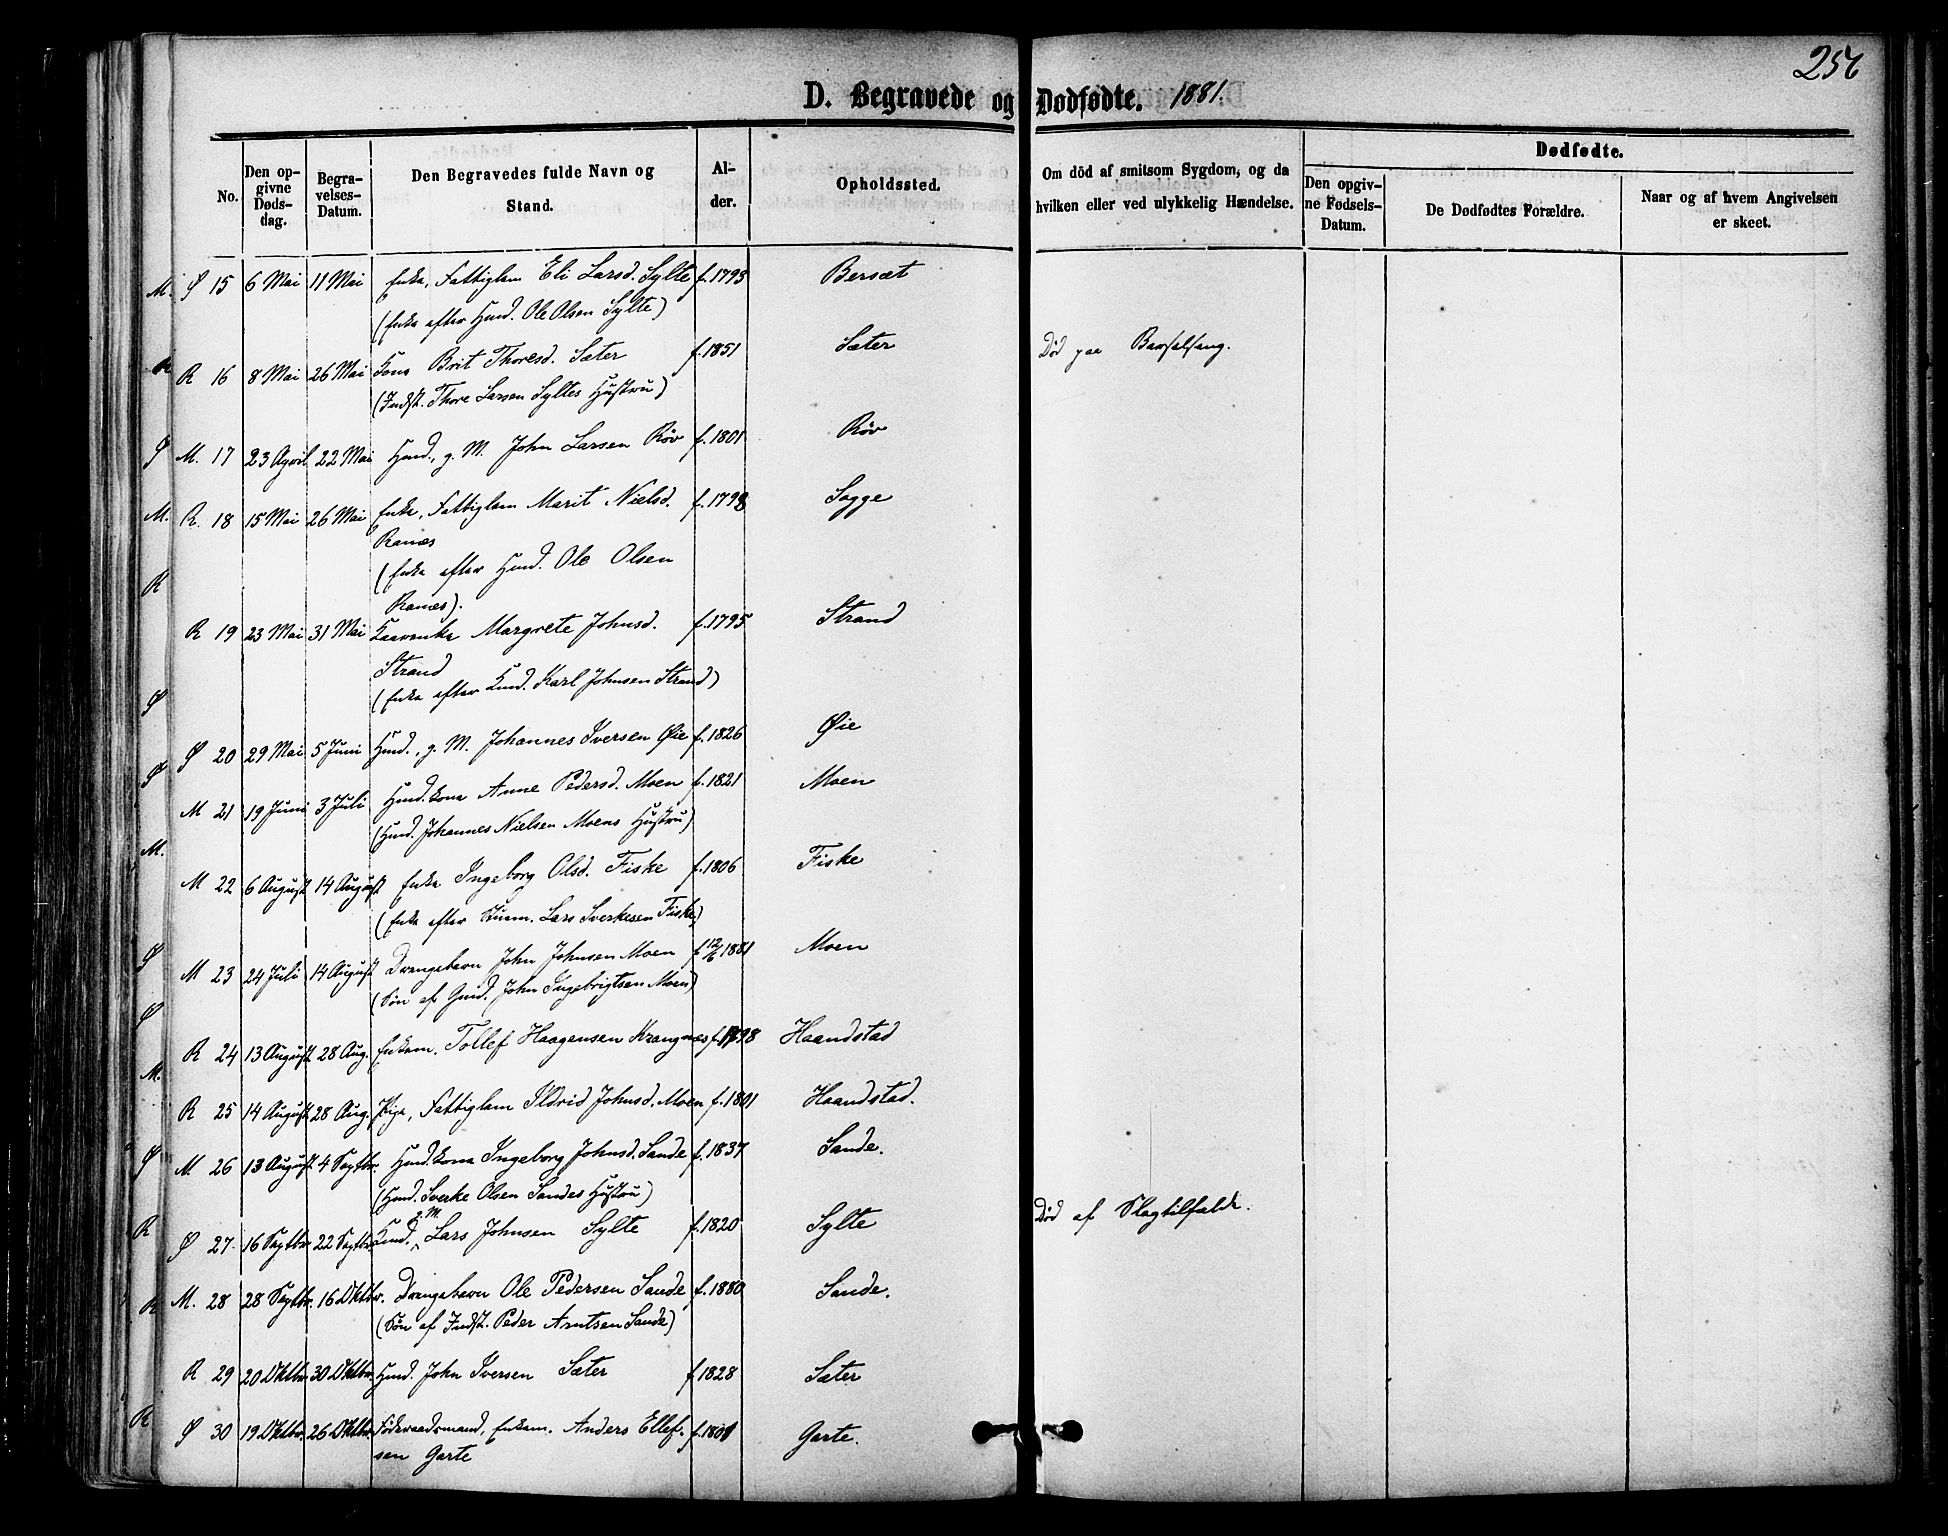 256
D. Begravede og Dødfødte. 1881.
No.
Den op-
givne
Døds-
dag.
Begra-
velses-
Datum.
Den Begravedes fulde Navn og
Stand.
Al-
der.
Opholdssted.
Om död af smitsom Sygdom, og da
hvilken eller ved ulykkelig Hændelse.
Dødfødte.
Den opgiv-
ne Fødsels-
Datum.
De Dødfødtes Forældre.
Naar og af hvem Angivelsen
er skeet.
M. Ø 15 6 Mai 11 Mai Enke, Fattiglem Eli Larsd. Sylte f. 1793 Bersæt
(Enke efter Hmd. Ole Olsen Sylte)
R R 16 8 Mai 26 Mai Kona Brit Thoresd. Sæter f. 1851 Sæter Død paa Barselseng.
(Indst. Thore Larsen Syltes Hustru)
Ø M. 17 23 April 22 Mai Hmd., g. M. John Larsen Røv f. 1801 Røv
M. R. 18 15 Mai 26 Mai Enke, Fattiglem Marit Nielsd. f. 1798 Sogge
Ranæs
(Enke efter Hmd. Ole Olsen
R
Ranæs).
R 19 23 Mai 31 Mai Kaarenke Margrete Johnsd. f. 1795 Strand
Strand
(Enke efter Kmd. Karl Johnsen Strand)
Ø
Ø 20 29 Mai 5 Juni Hmd., g. M. Johannes Iversen Øie f. 1826 Øie
Ø
M 21 19 Juni 3 Juli Hmd.kona Anne Pedersd. Moen f. 1821 Moen
(Hmd. Johannes Nielsen Moens Hustru)
M.
M 22 6 August 14 August Enke Ingeborg Olsd. Fiske f. 1806 Fiske
(Enke efter Lars Sverkesen Fiske)
Ø
M 23 24 Juli 14 August Drengebarn John Johnsen Moen f 12/6 1881 Moen
(Søn af Gmd. John Ingebrigtsen Moen)
Ø
R 24 13 August 28 Aug. Enkem. Tollef Haagensen Krangnæs f. 1798 Haandstad
M.
R 25 14 August 28 Aug. Pige, Fattiglem Ildrid Johnsd. Moen f. 1801 Haandstad.
Ø M. 26 13 August 4 Septbr. Hmd.kona Ingeborg Johnsd. Sande f. 1837 Sande.
(Hmd. Sverke Olsen Sandes Hustru)
g. M.
R Ø 27 16 Septbr 22 Septbr Kmd., Lars Johnsen Sylte f. 1820 Sylte Død af Slagtilfælde.
R M. 28 28 Septbr. 16 Oktbr. Drengebarn Ole Pedersen Sande f. 1880 Sande.
(Søn af Indst. Peder Arntsen Sande)
R 29 20 Oktbr. 30 Oktbr. Hmd. John Iversen Sæter f. 1828 Sæter
R Ø 30 19 Oktbr. 26 Oktbr. Føderaadsmand, Enkem. Anders Ellef- f. 1801 Garte.
sen Garte